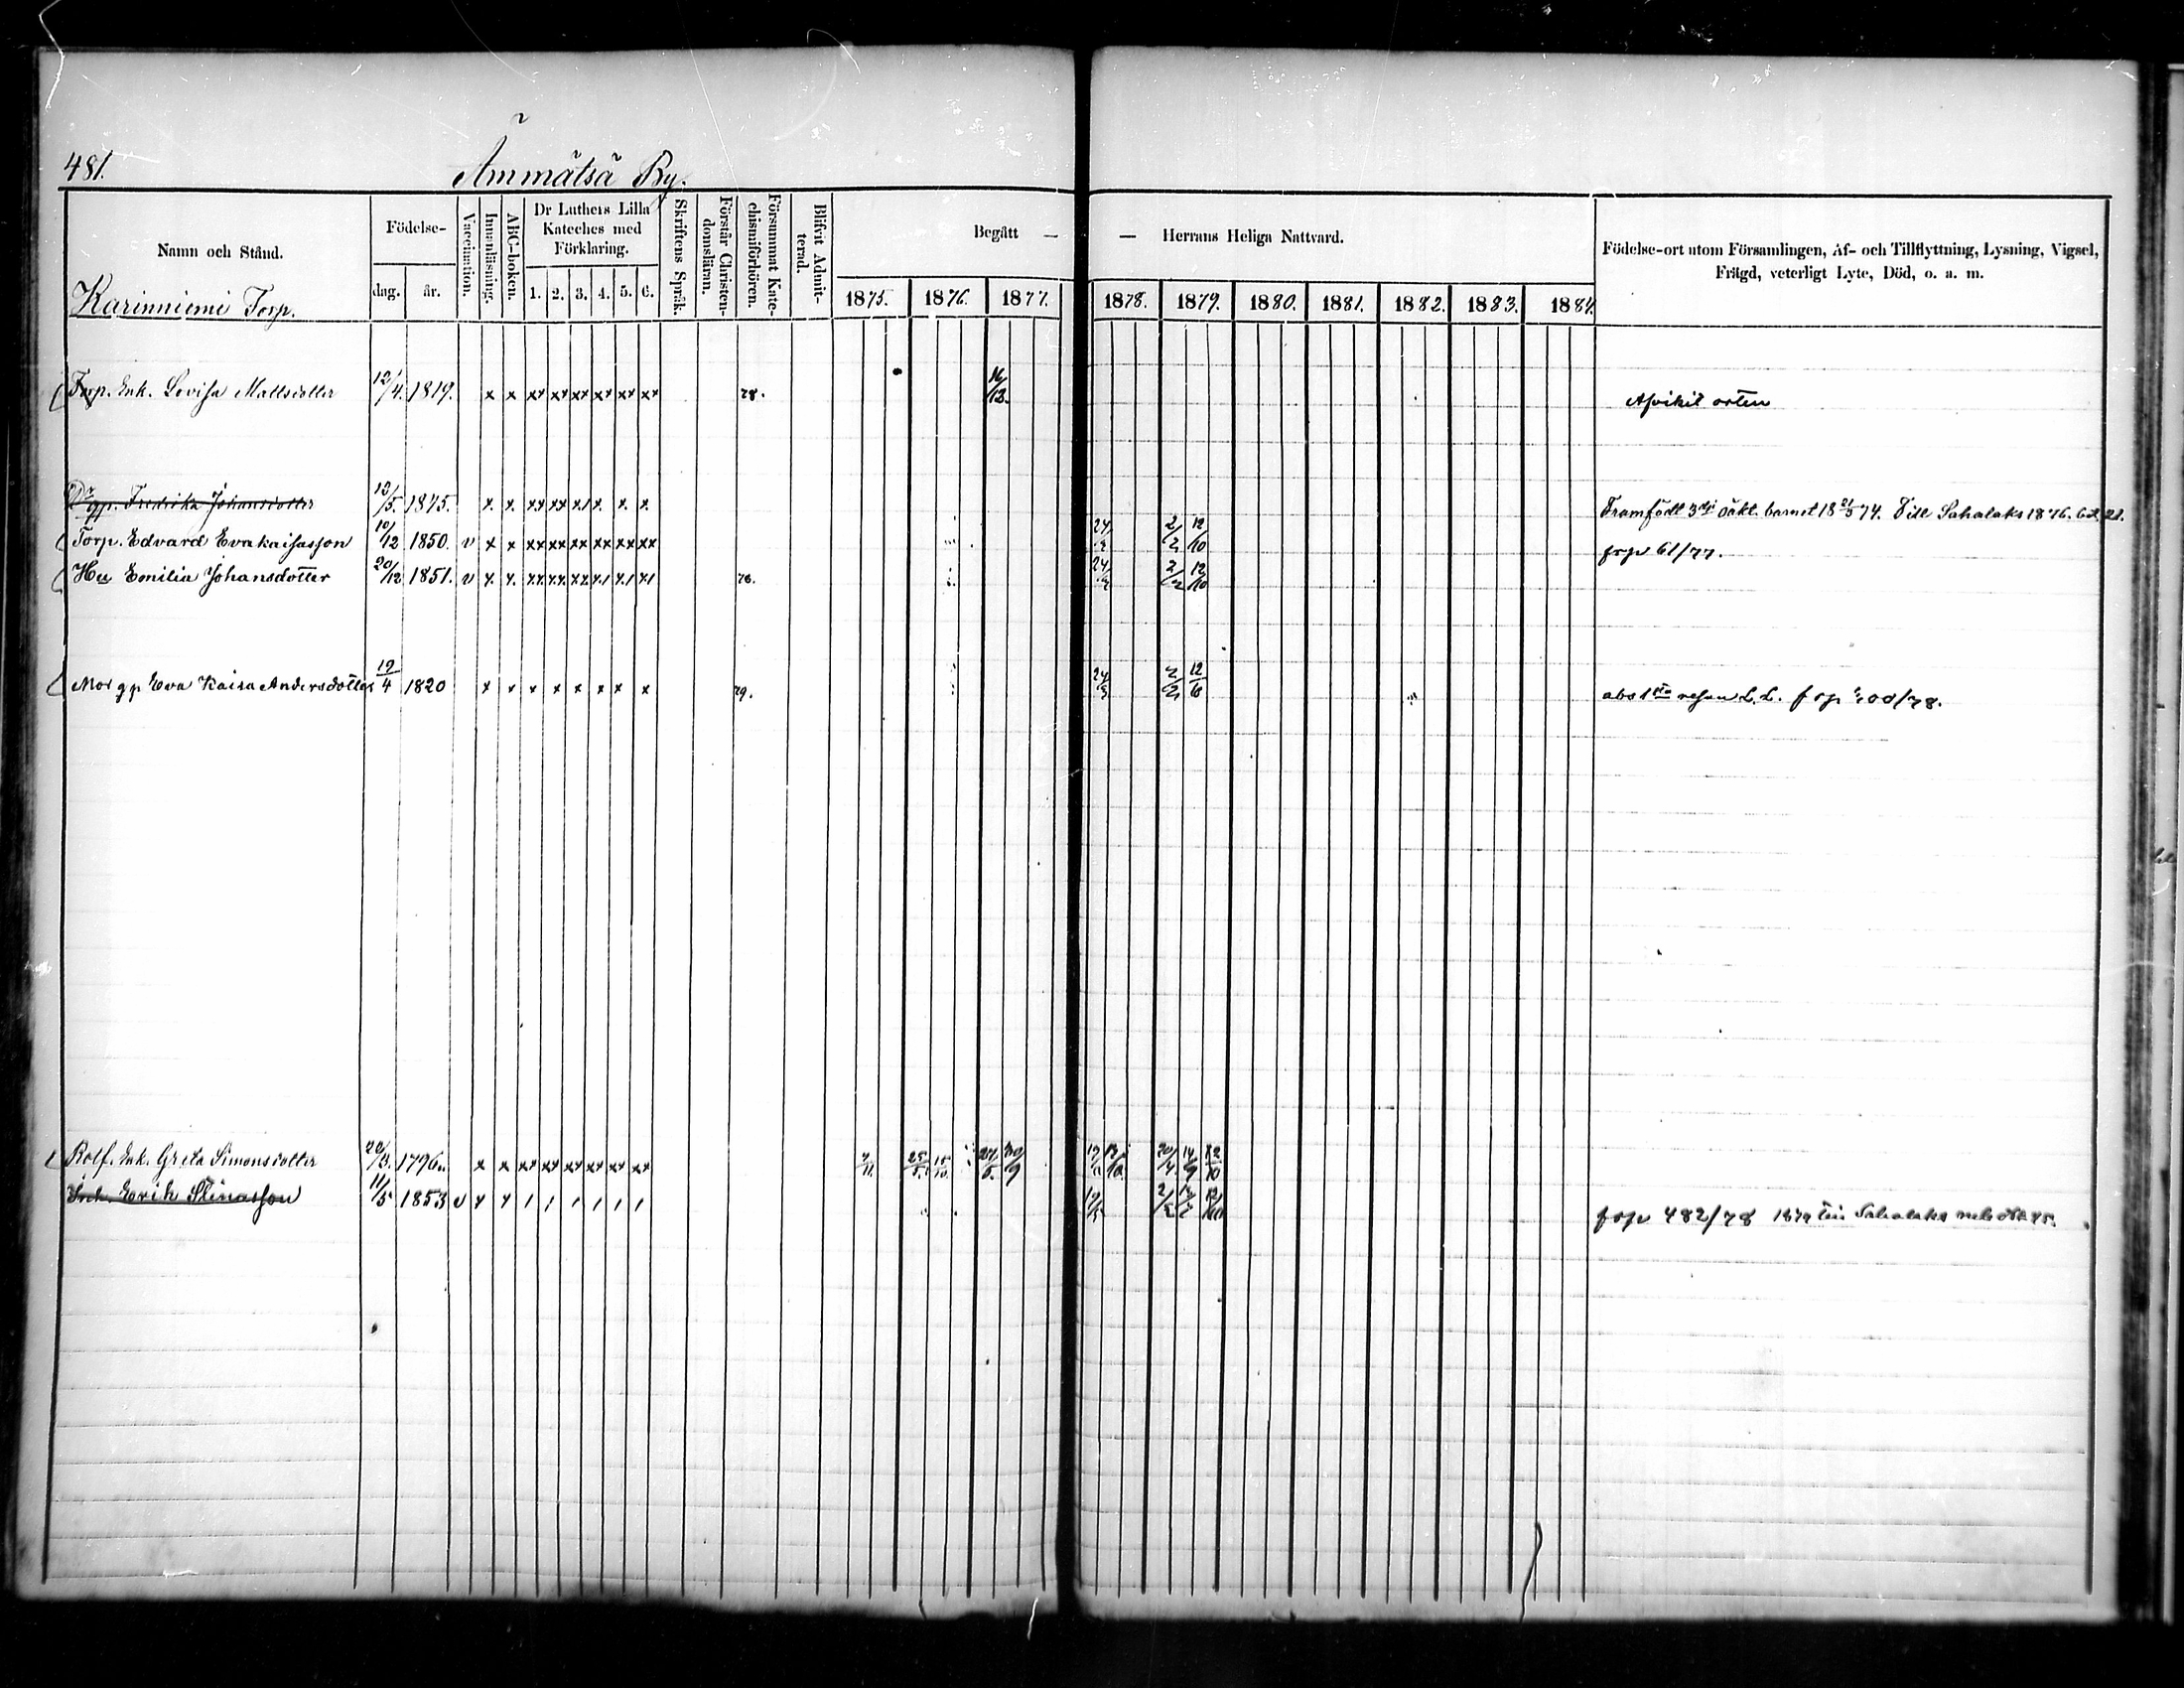 481.
Ämmätsä By.
Namn och Stånd.
Karinniemi Torp.
Födelse-
dag.
år.
Vaccination.
Innanläsning.
ABC-boken.
Dr Luthers Lilla
Kateches med
Förklaring.
1. 2. 3. 4. 5. 6.
Skriftens Språk.
Förstår Christen-
domsläran.
Försummat Kate-
chismiförhören.
Blifvit Admit-
terad.
Begått —
— Herrans Heliga Nattvard.
1875. 1876. 1877. 1878. 1879. 1880. 1881. 1882. 1883. 1884.
Födelse-ort utom Församlingen, Af- och Tillflyttning, Lysning, Vigsel,
Frägd, veterligt Lyte, Död, o. a. m.
Torp. Enk. Lovisa Mattsdotter 12/4. 1819. x x xx xx xx xx xx xx 78. 16/12. Afvikit orten
Dr gp. Fredrika Johansdotter 13/5. 1845. x x xx xx x1 x x x Framfödt 3dje oäkt. barnet 18 21/5 74. Till Sahalaks 1876. bet. 21.
Torp. Edvard Evakaisasson 10/12 1850. v x x xx xx xx xx xx xx 24/3 2/2 12/10 frp 61/77.
Hu Emilia Johansdotter 20/12 1851. v x x xx xx xx x1 x1 x1 76. 24/3 2/2 12/10
Mor gp Eva Kaisa Andersdotter 19/4 1820 x x x x x x x x 79. 24/3 2/2 12/10 abs 1sta resan L.L. frp 400/78.
Rotf. Enk. Greta Simonsdotter 1796. x x xx xx xx xx xx xx 7/11. 27/5. 30/9 20/4. 14/9 12/10
Erik Stinasson 11/5 1853 v x x 1 1 1 1 1 1 frp 482/78 1879 till Sahalaks